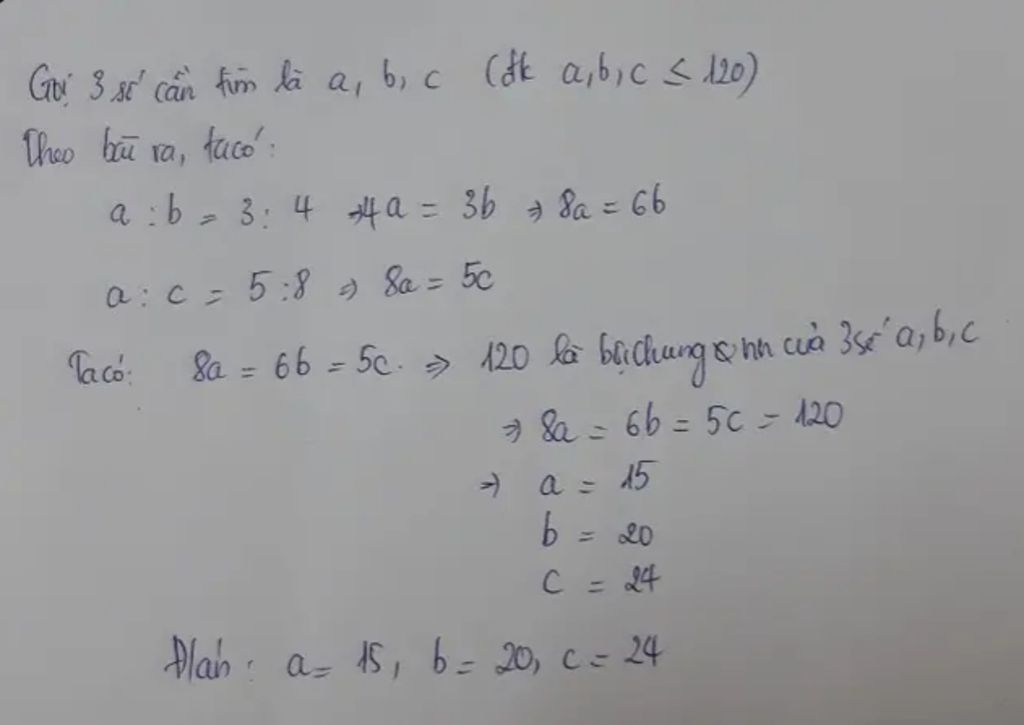 Gọi 3 số cần tìm là a, b, c (đk a,b,c ≤ 120)
Theo bài ra, ta có:
a : b = 3 : 4 ⇒ 4a = 3b ⇒ 8a = 6b
a : c = 5 : 8 ⇒ 8a = 5c
Ta có: 8a = 6b = 5c. ⇒ 120 là bội chung nn của 3 số a, b, c
⇒ 8a = 6b = 5c = 120
⇒ a = 15
b = 20
c = 24
a = 15, b = 20, c = 24